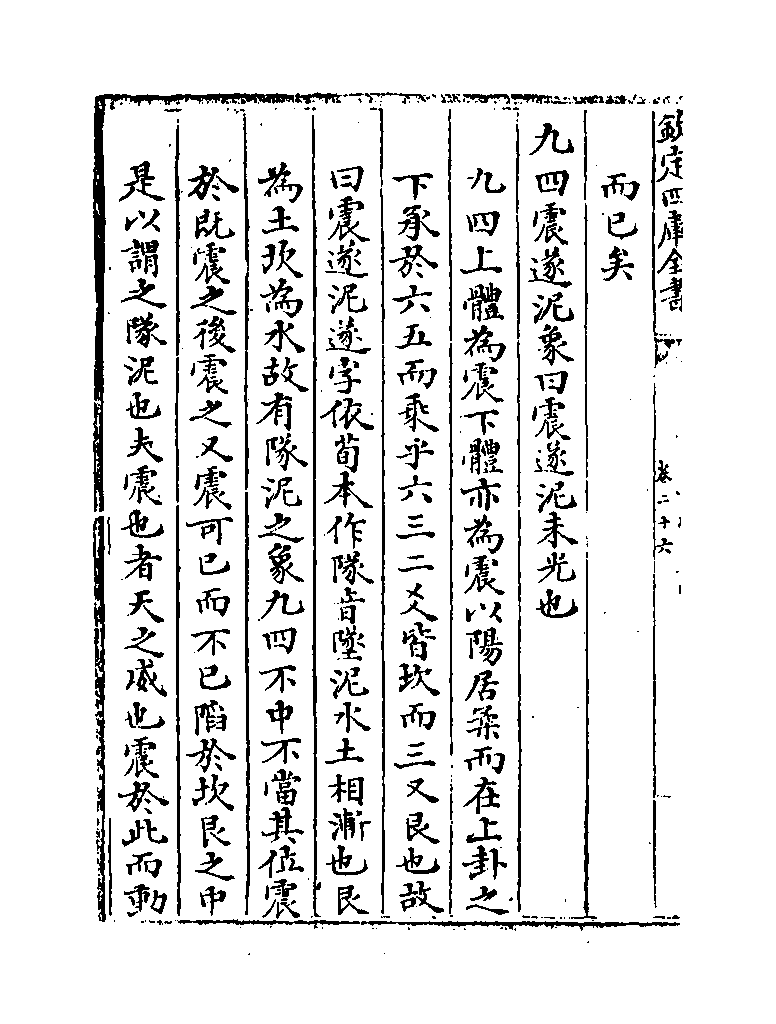 欽定四庫全書
卷二十六
而已矣
九四震遂泥象曰震遂泥未光也
九四上體為震下體亦為震以陽居柔而在上卦之
下承於六五而乘乎六三二爻皆坎而三又艮也故
曰震遂泥遂字依荀本作隊音墜泥水土相漸也艮
為土坎為水故有隊泥之象九四不中不當其位震
於既震之後震之又震可已而不已陷於坎艮之中
是以謂之隊泥也夫震也者天之威也震於此而動